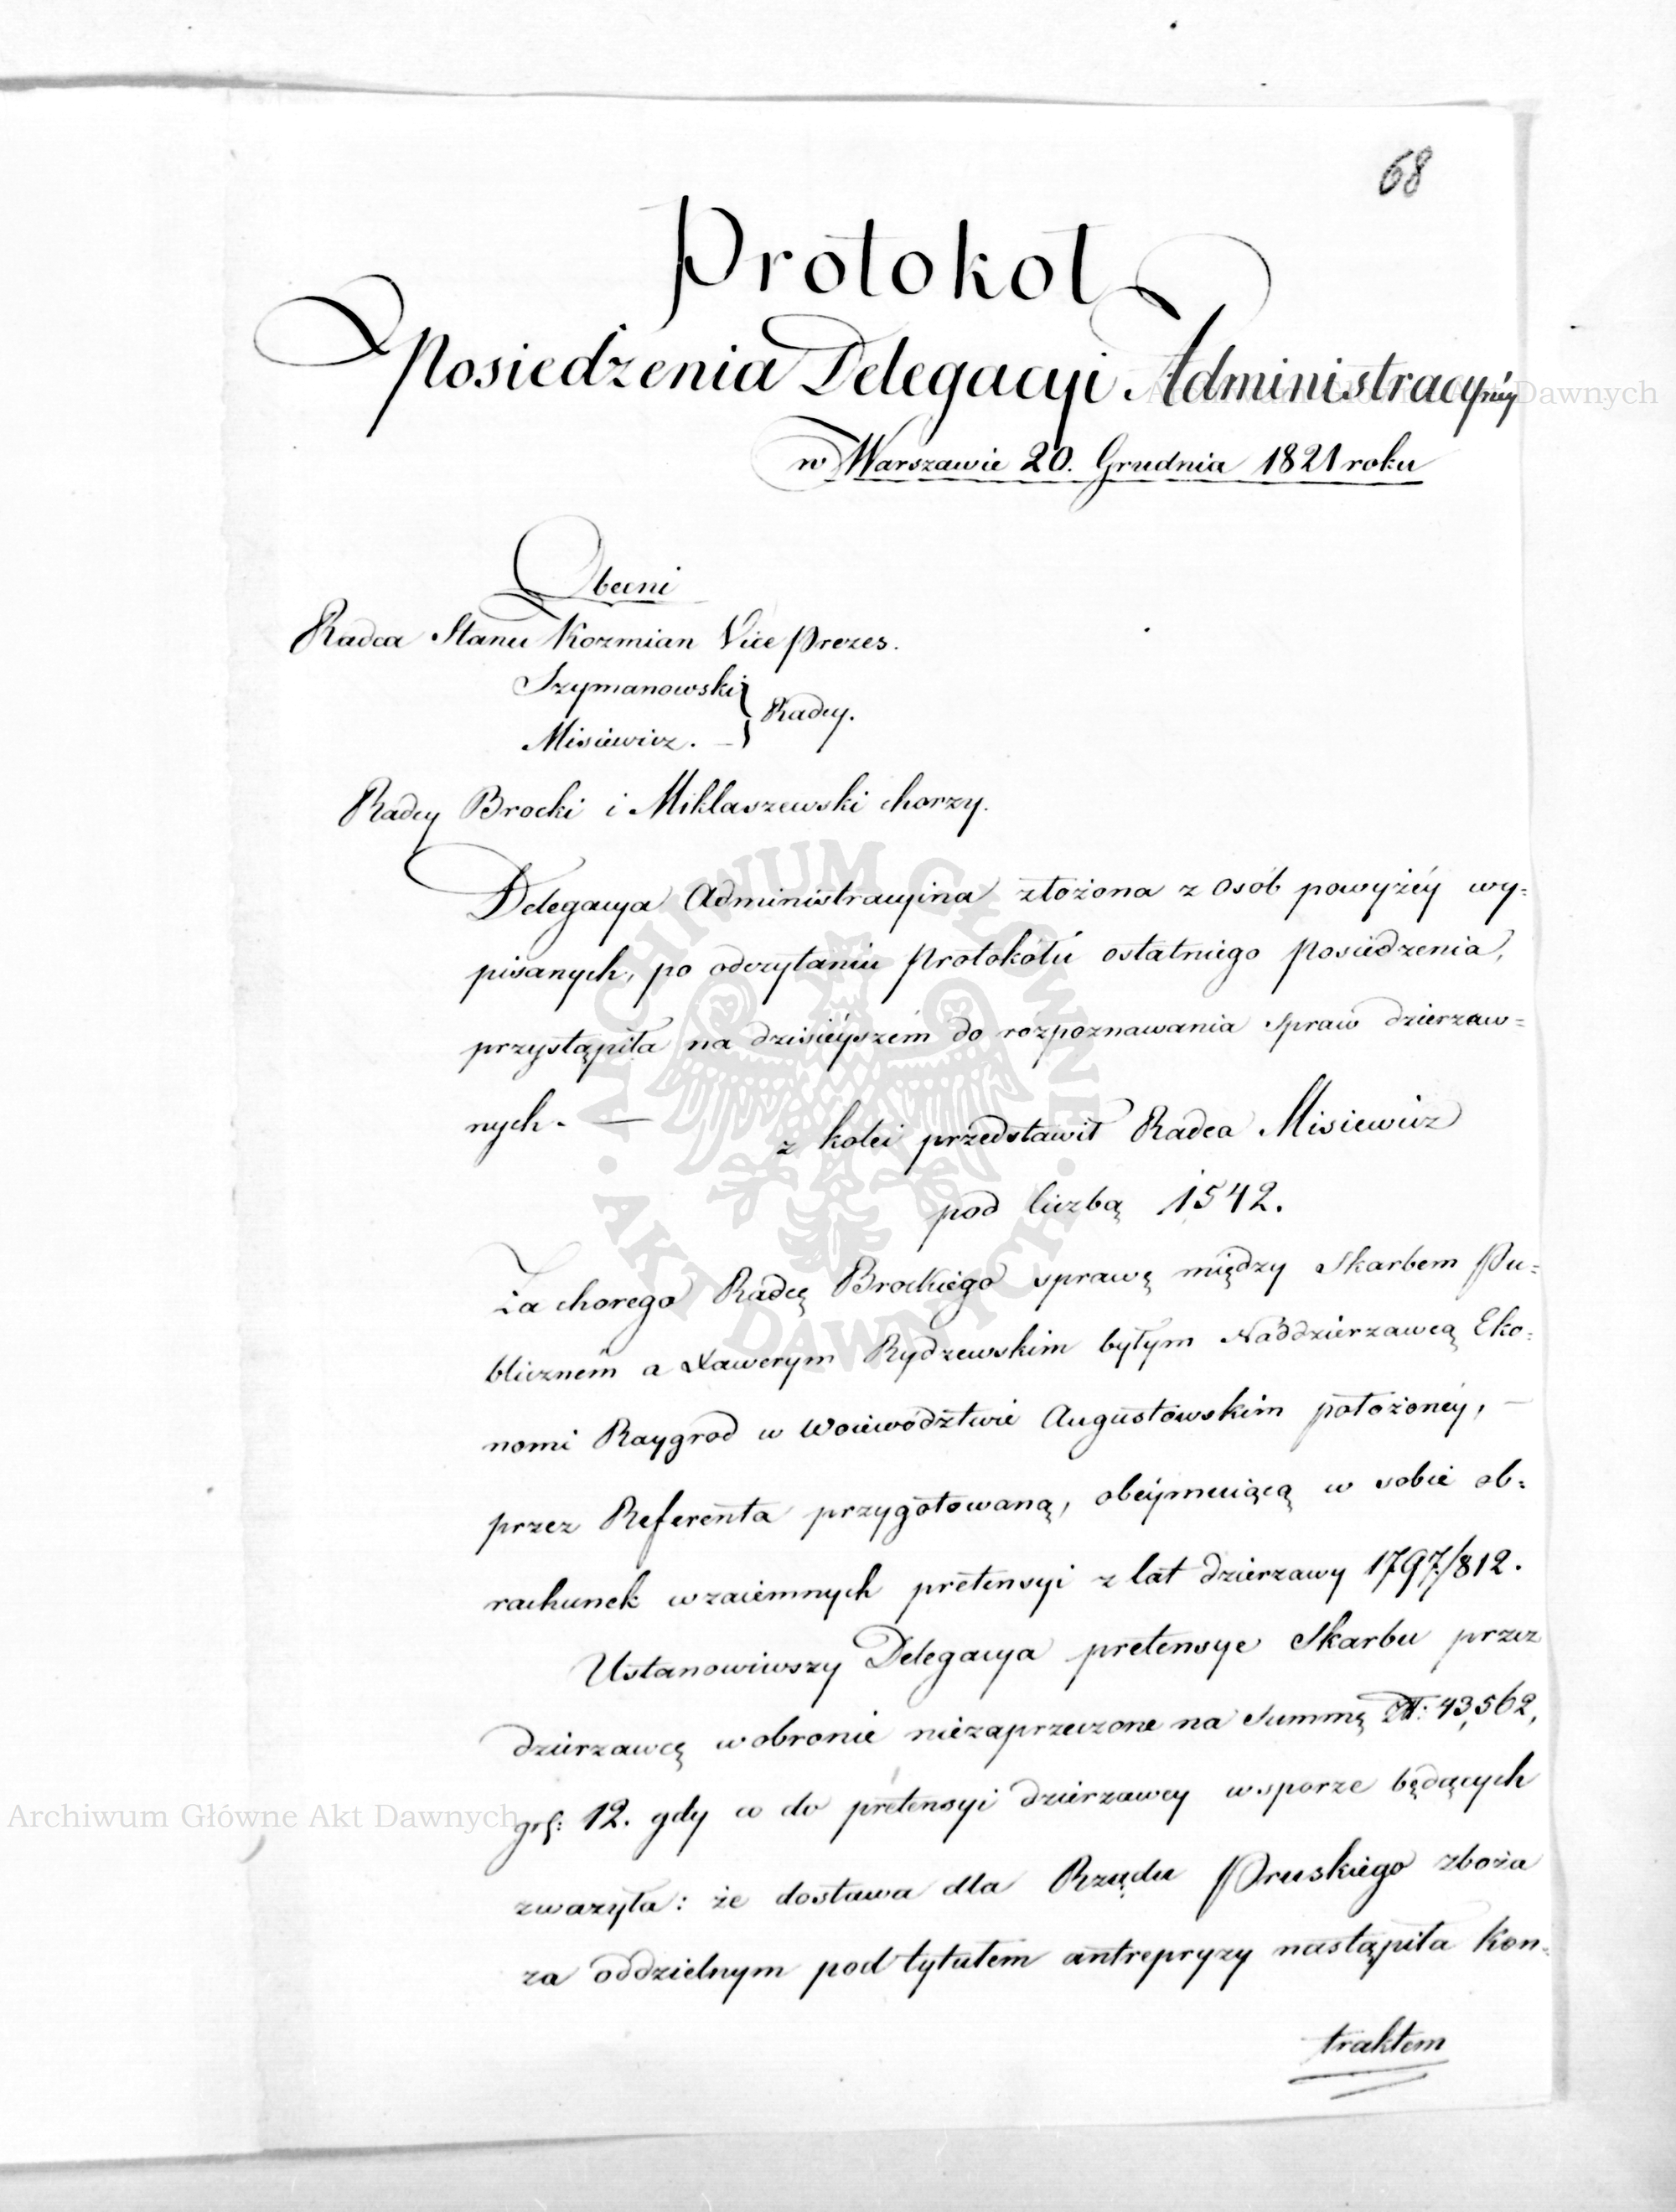 68
Protokół
Posiedzenia Delegacyi Administracyiney
w Warszawie 20. Grudnia 1821 roku
Obecni
Radca Stanu Kozmian Vice Prezes.
Szymanowski
Misiewicz. } Radcy.
Radcy Brocki i Miklaszewski chorzy.
Delegacya Administracyina złożona z osób powyżéy wy=
pisanych, po odczytaniu Protokółu ostatniego Posiedzenia,
przystąpiła na dzisiéyszém do rozpoznawania Spraw dzierzaw=
nych. —
z kolei przedstawił Radca Misiewicz
pod liczbą 1542.
Za chorego Radcę Brockiego sprawę między Skarbem Pu=
blicznem a Xawerym Rydzewskim byłym Naddzierzawcą Eko=
nomi Raygrod w Woiewództwie Augustowskim położonéy, —
przez Referenta przygotowaną, obéymuiącą w sobie ob=
rachunek wzaiemnych pretensyi z lat dzierzawy 1797/812.
Ustanowiwszy Delegacya pretensye Skarbu przez
dzierzawcę w obronie niezaprzeczone na Summę Zł: 43,562,
gr: 12. gdy co do pretensyi dzierzawcy w sporze będących
zwazyła: że dostawa dla Rządu Pruskiego zboża
za oddzielnym pod tytułem antrepryzy nastąpiła Kon=
traktem
Archiwum Główne Akt Dawnych
Archiwum Główne Akt Dawnych
ARCHIWUM GŁÓWNE · AKT DAWNYCH ·